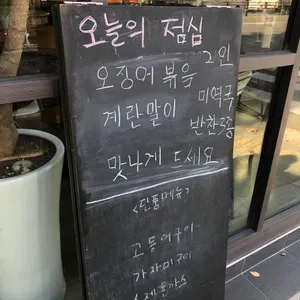 오늘의 점심
오징어볶음 2인
계란말이 미역국
반찬 5종
맛나게 드세요
<단품메뉴>
고등어구이
가자미구이